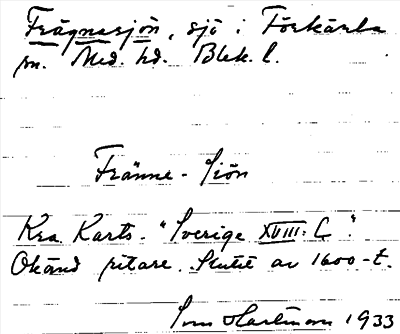 Frägnasjön, sjö i Förkärla
sn. Med. hd. Blek. l.
Fränne-Siön
Kra Karts. "Sverige XVIII: C".
Okänd ritare. Slutet av 1600-t.
Sven Hartman 1933